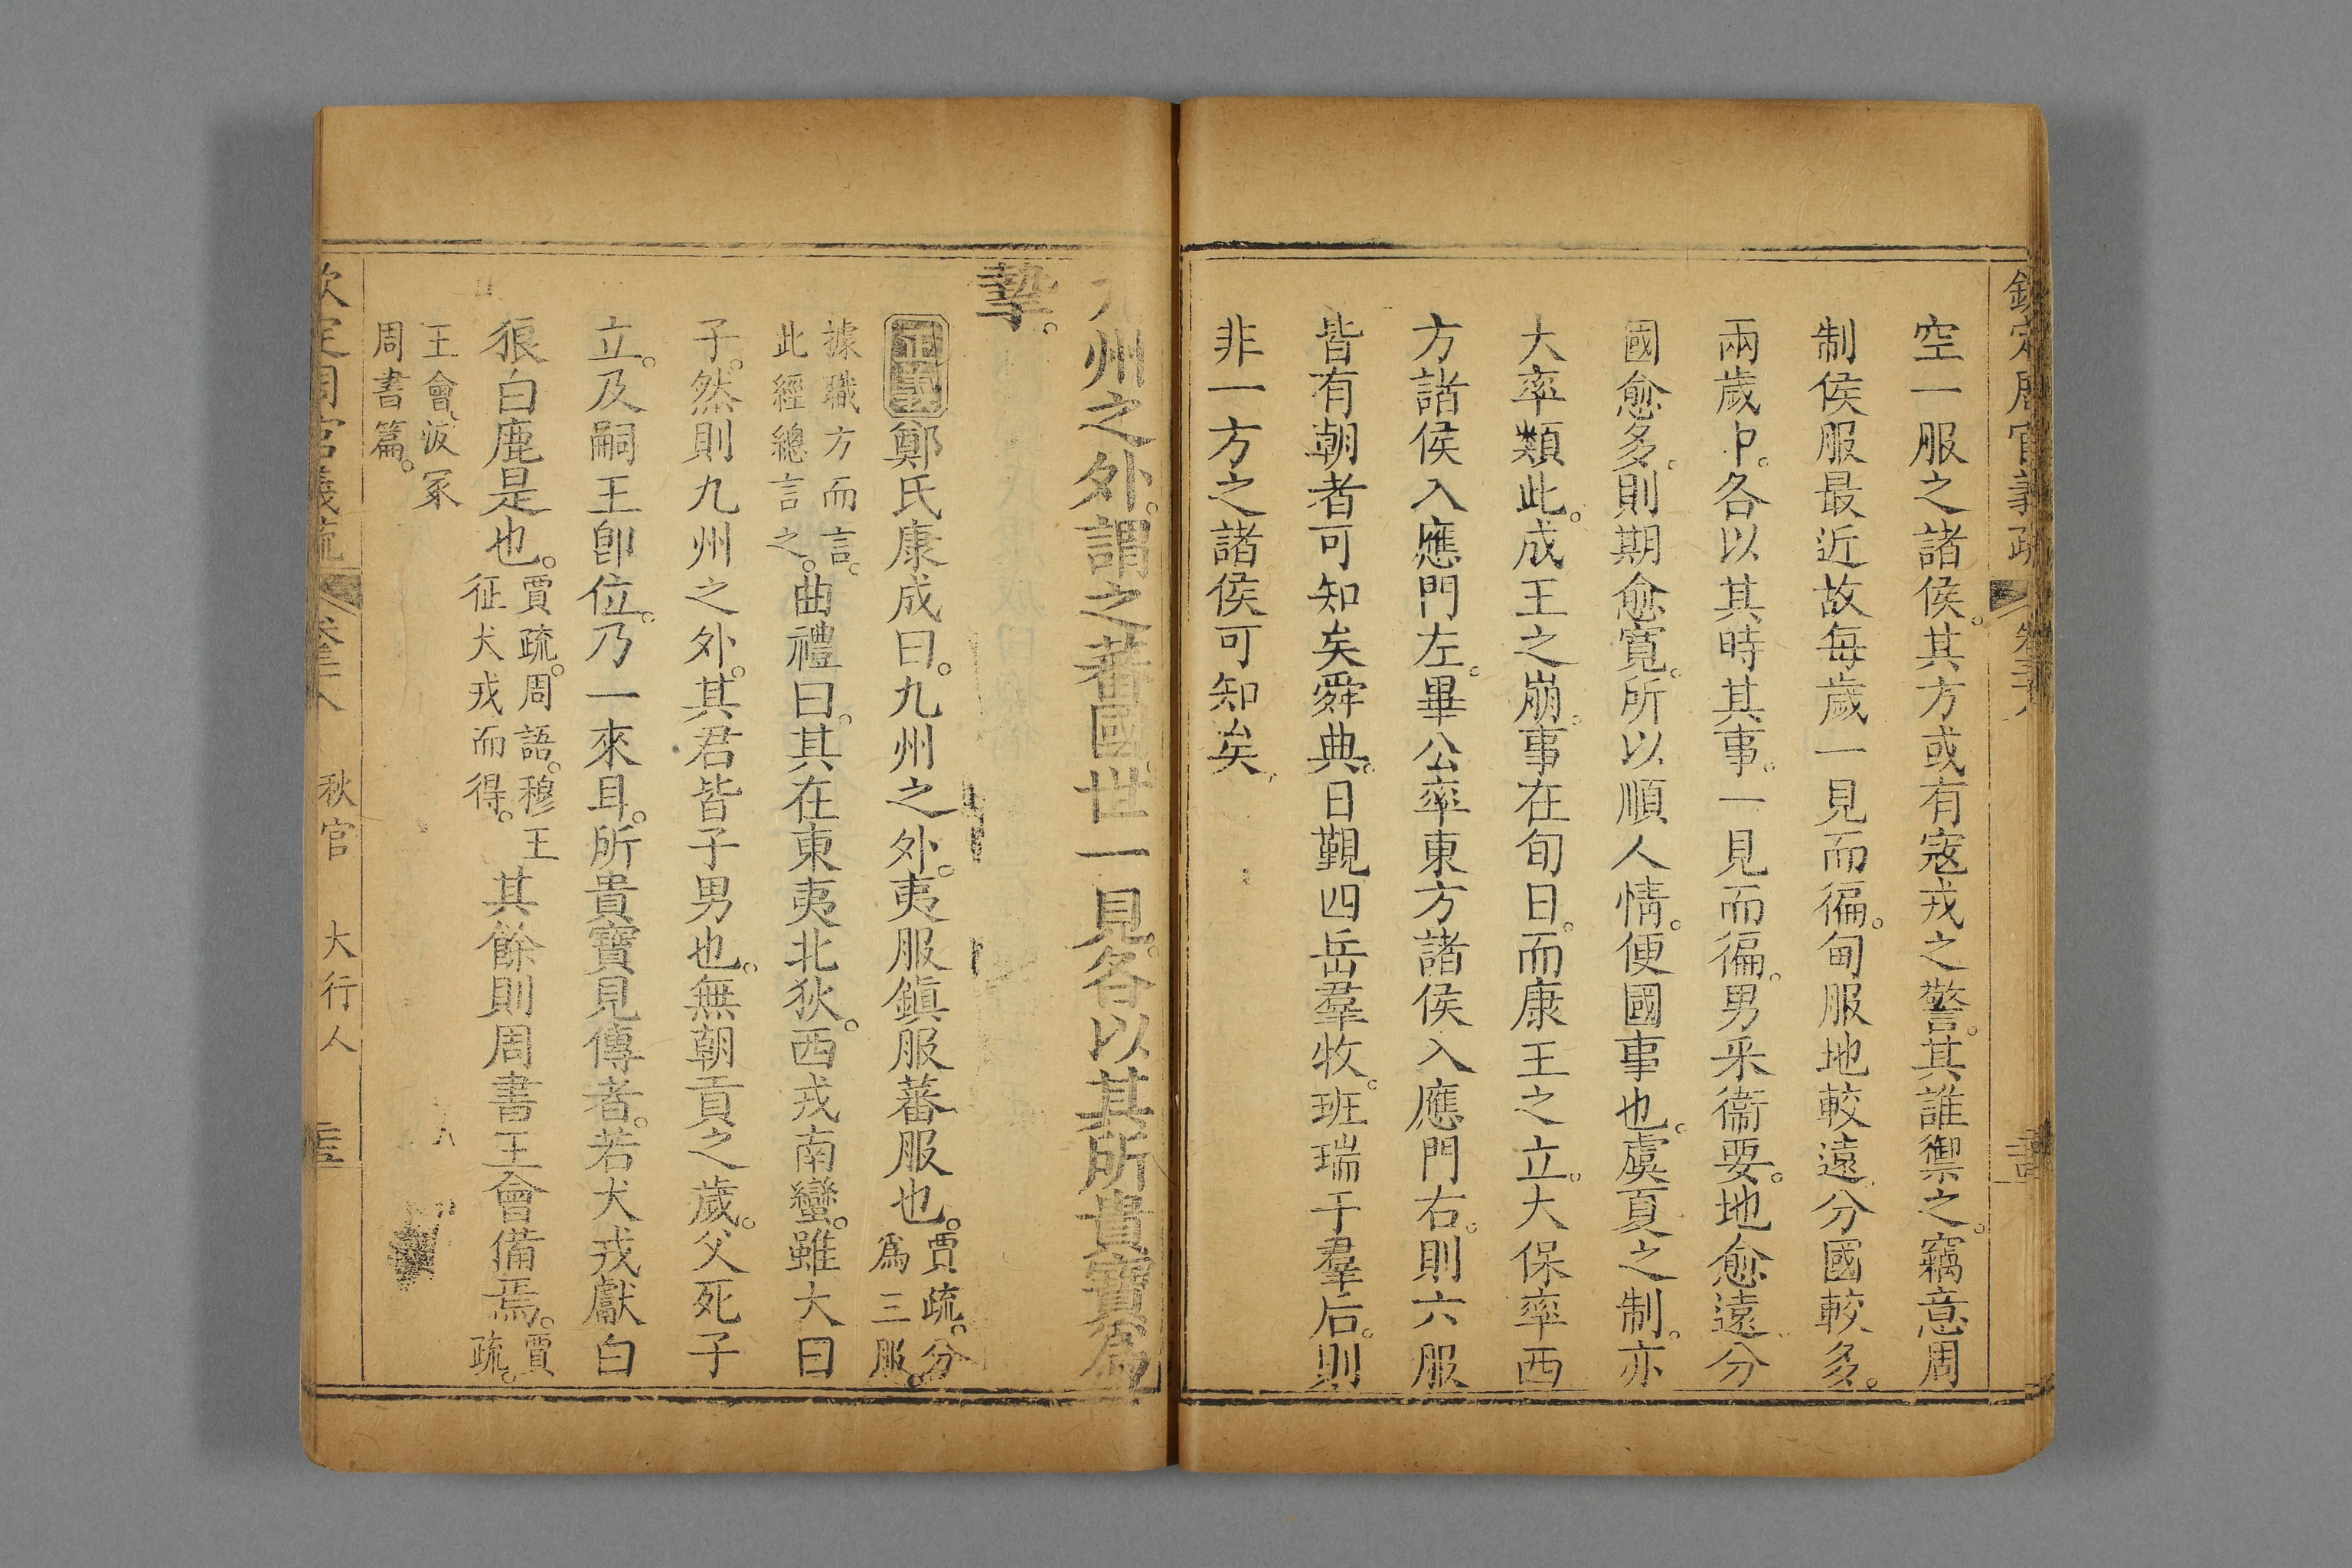 空一服之諸侯。其方或有寇戎之警。其誰禦之。竊意周
制侯服最近故每歲一見而徧。甸服地較遠分國較多。
兩歲中。各以其時其事。一見而徧。男采衞要。地愈遠分
國愈多。則期愈寬。所以順人情。便國事也。虞夏之制。亦
大率類此。成王之崩。事在旬日。而康王之立。大保率西
方諸侯入應門左。畢公率東方諸侯入應門右。則六服
皆有朝者可知矣舜典。日覲四岳羣牧。班瑞于羣后。則
非一方之諸侯可知矣
州之外。謂之蕃國。世一見。各以其所貴寶爲
摯。
正義鄭氏康成曰。九州之外。夷服鎭服蕃服也。賈疏。分爲三服。
據職方而言。此經總言之。曲禮曰。其在東夷北狄。西戎南蠻。雖大曰
子。然則九州之外。其君皆子男也。無朝貢之歲。父死子
立。及嗣王卽位。乃一來耳。所貴寶見傳者。若犬戎獻白
狼白鹿是也。賈疏。周語。穆王征犬戎而得。其餘則周書王會備焉。賈疏。
王會、汲冢周書篇。
秋官 大行人